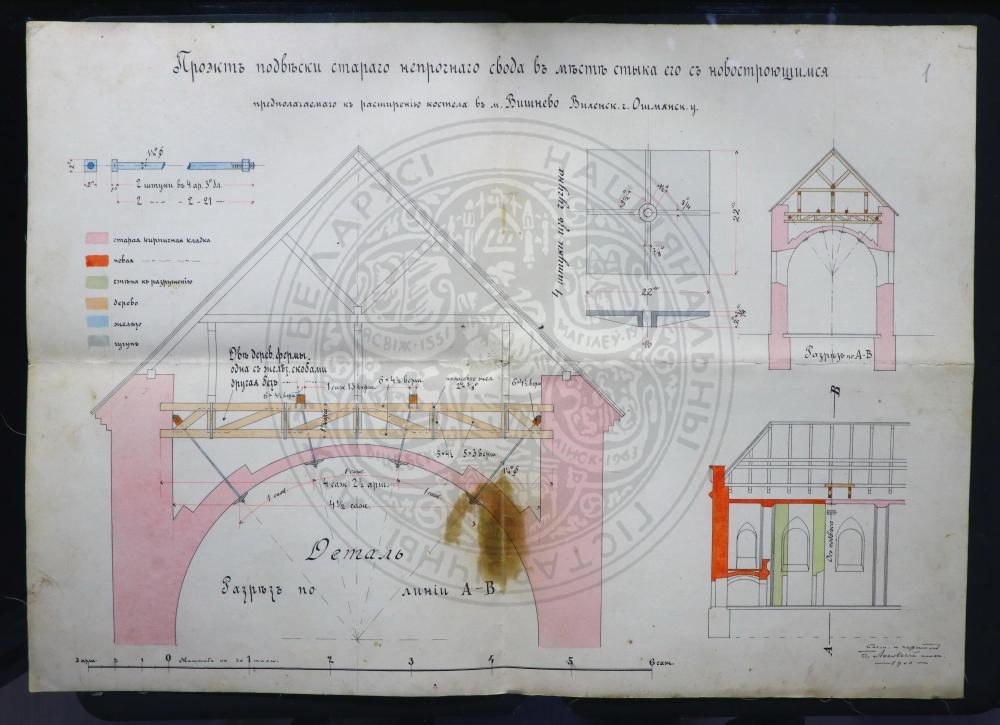 Проэктъ подвѣски стараго непрочнаго свода въ мѣстѣ стыка его съ новостроющимся
предполагаемаго къ расширенію костела въ м. Вишнево Виленск. г. Ошмянск. у.
1
2"
1¼" ф
2"
2 штуки въ 4 ар. 3" дл.
2 — „ — 2 - 21 — „
старая кирпичная кладка
новая — „ —
стѣна къ разрушенію
дерево
желѣзо
чугунъ
4 штуки изъ чугуна
22"
3/4"
22"
Двѣ дерев. фермы,
одна съ желѣз. скобами
другая безъ
1 саж 13 верш.
6 × 4½ верш.
6 × 4½ верш
5 × 4½
5 × 3 верш.
1 саж.
4 саж 2½ арш.
4½ саж.
1 саж.
1 саж.
Деталь
Разрѣзъ по линіи А–В
Разрѣзъ по А-В
В
А
3 арш. 2 1 0 1 2 3 4 5 6 саж.
НАЦЫЯНАЛЬНЫ ГІСТАРЫЧНЫ БЕЛАРУСІ
НЯСВІЖ·1551
МАГІЛЕЎ
МІНСК·1963